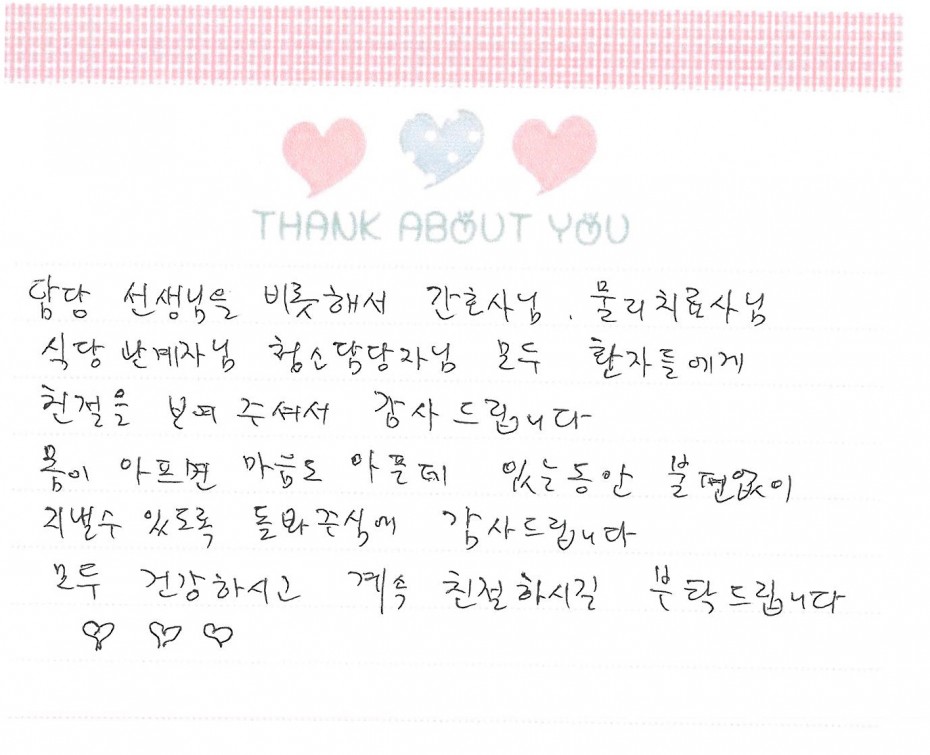 THANK ABOUT YOU
담당 선생님을 비롯해서 간호사님. 물리치료사님
식당 관계자님 청소담당자님 모두 환자들에게
친절을 보여 주셔서 감사드립니다
몸이 아프면 마음도 아플데 있는동안 불편없이
지낼수 있도록 돌봐주심에 감사드립니다
모두 건강하시고 계속 친절하시길 부탁드립니다